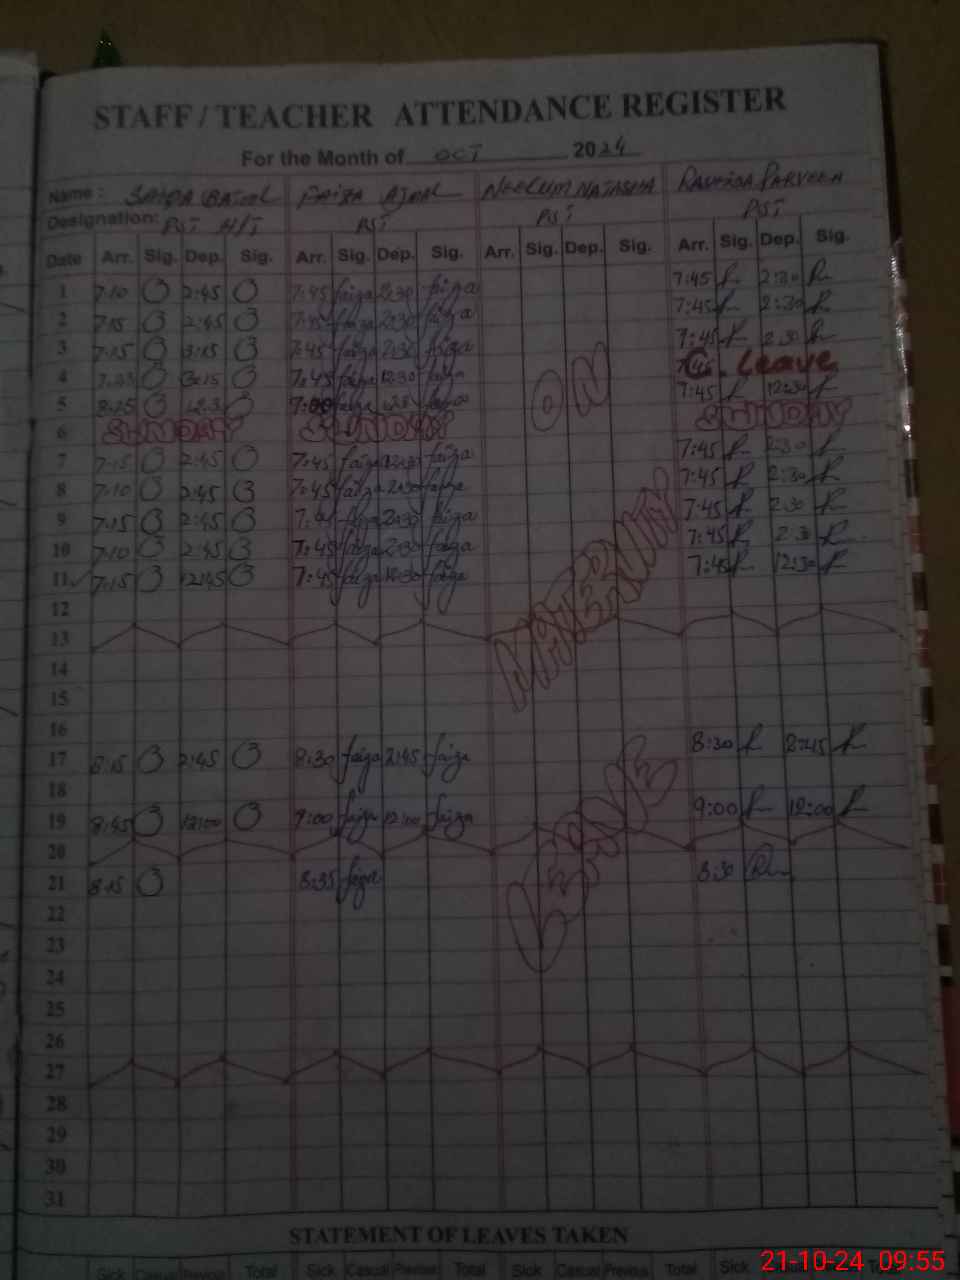 STAFF / TEACHER ATTENDANCE REGISTER
For the Month of OCT 2024
Name : SAIDA BATOOL FAIZA AJMAL NEELUM NATASHA RASHIDA PARVEEN
Designation: PST H/T PST PST PST
Date Arr. Sig. Dep. Sig. Arr. Sig. Dep. Sig. Arr. Sig. Dep. Sig. Arr. Sig. Dep. Sig.
1 7:10 2:45 7:45 faiza 2:30 faiza 7:45 2:30
2 7:15 2:45 7:45 faiza 2:30 faiza 7:45 2:30
3 7:15 3:15 7:45 faiza 2:30 faiza 7:45 2:30
4 3:15 7:45 faiza 12:30 faiza Leave
5 8:15 7:00 faiza faiza 7:45 12:30
ON
6 SUNDAY SUNDAY SUNDAY
7 7:15 2:45 7:45 faiza faiza 7:45 2:30
8 7:10 2:45 7:45 faiza 2:30 faiza 7:45 2:30
9 7:15 2:45 7:45 faiza 2:30 faiza 7:45 2:30
10 7:10 2:45 7:45 faiza 2:30 faiza 7:45 2:30
11 7:15 12:45 7:45 faiza 12:30 faiza 7:45 12:30
12
MATERNITY
13
14
15
16
17 8:15 2:45 8:30 faiza 2:45 faiza 8:30 2:45
18
19 8:45 12:00 9:00 faiza 12:00 faiza 9:00 12:00
LEAVE
20
21 8:15 8:35 faiza 8:30
22
23
24
25
26
27
28
29
30
31
STATEMENT OF LEAVES TAKEN
Sick Casual Previous Total Sick Casual Previous Total Sick Casual Previous Total Sick
21-10-24 09:55